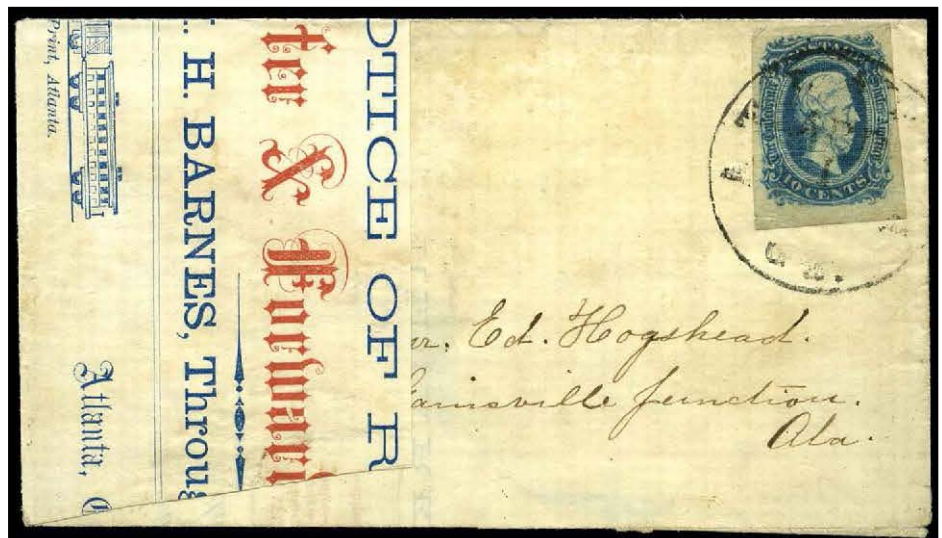 Print, Atlanta.
Atlanta,
H. BARNES, Throug
ter & Forward
OTICE OF R
10 CENTS
ATLANTA
Ed. Hogshead.
Gainsville Junction.
Ala.